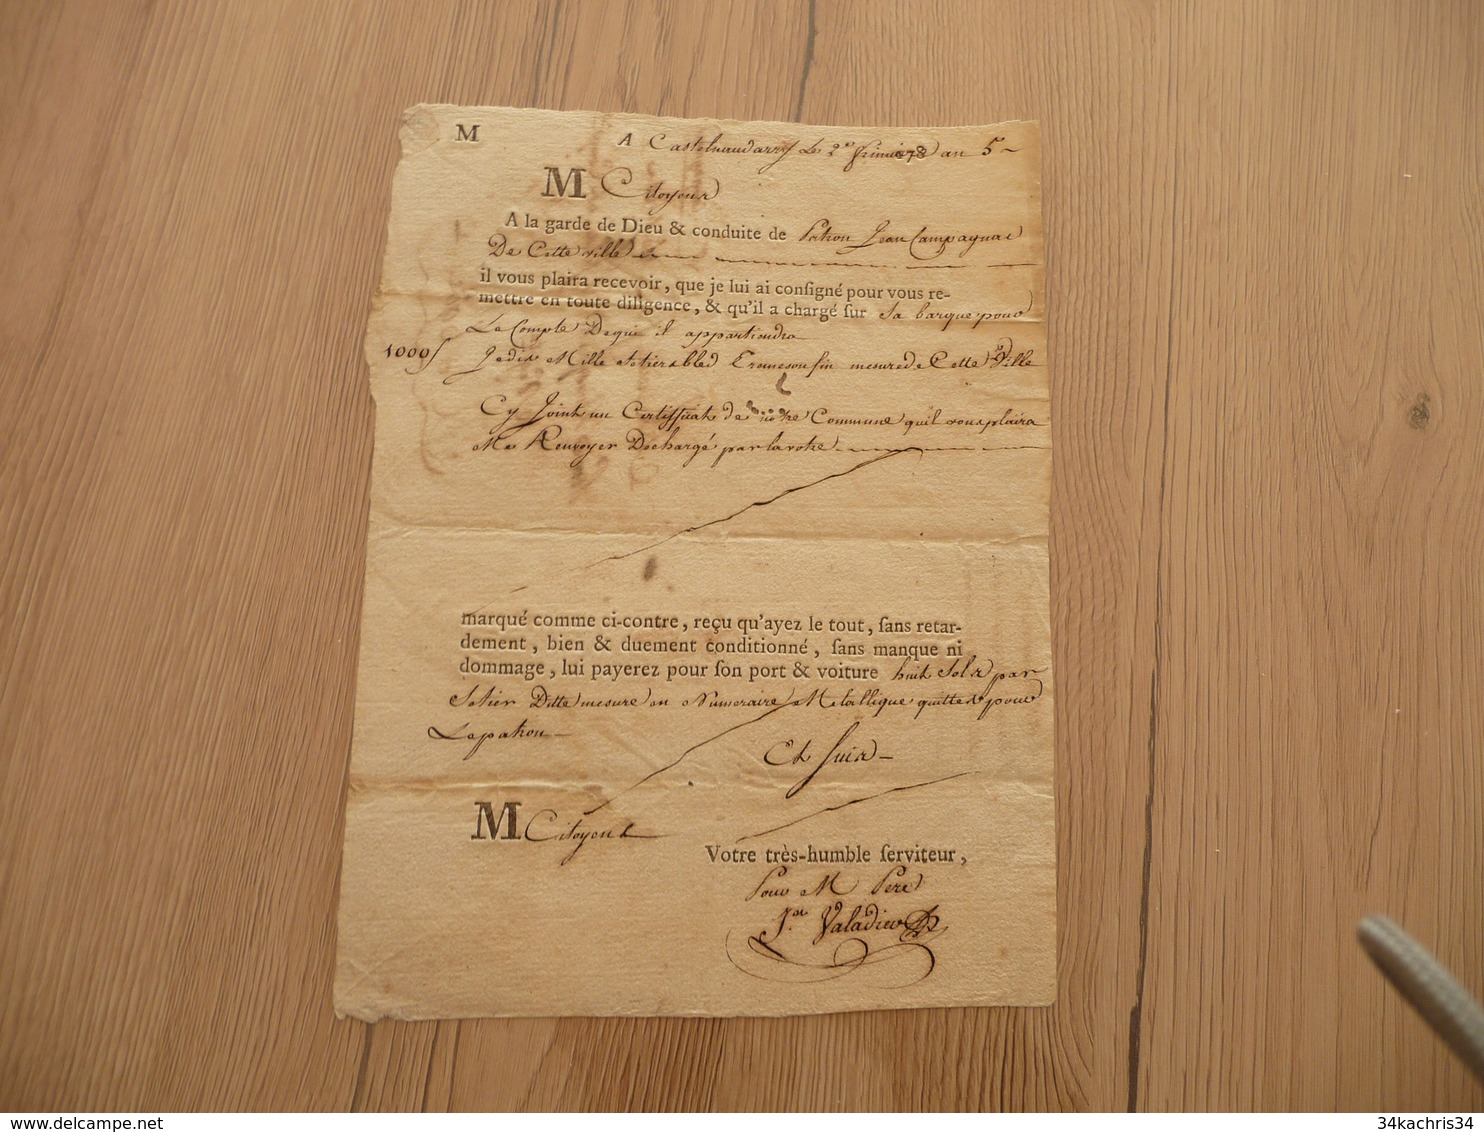 M A Castelnaudarry Le 2er frimere an 5
M Citoyens
A la garde de Dieu & conduite de Patron Jean Campagnac
De Cette ville
il vous plaira recevoir, que je lui ai consigné pour vous re-
mettre en toute diligence, & qu'il a chargé sur Sa barque pour
Le Compte De qui il appartiendra
1000 Mille Setiers bled fin mesure de Cette Ville
Cy Joint un Certifficat de notre Commune qu'il vous plaira
Me Renvoyer Déchargé par la votre
marqué comme ci-contre, reçu qu'ayez le tout, sans retar-
dement, bien & duement conditionné, sans manque ni
dommage, lui payerez pour son port & voiture huit Sols par
Setier Ditte mesure en Numeraire Metallique quittes pour
Le patron
Et Suis
M Citoyens
Votre très-humble serviteur,
Pour M Pere
Valadieu
34kachris34